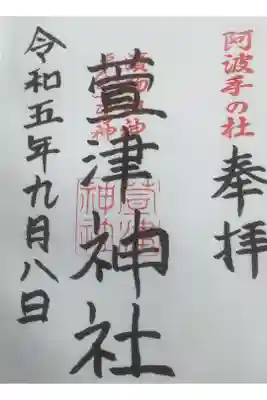 阿波手の杜
奉拝
萱津神社
萱津
神社
令和五年九月八日